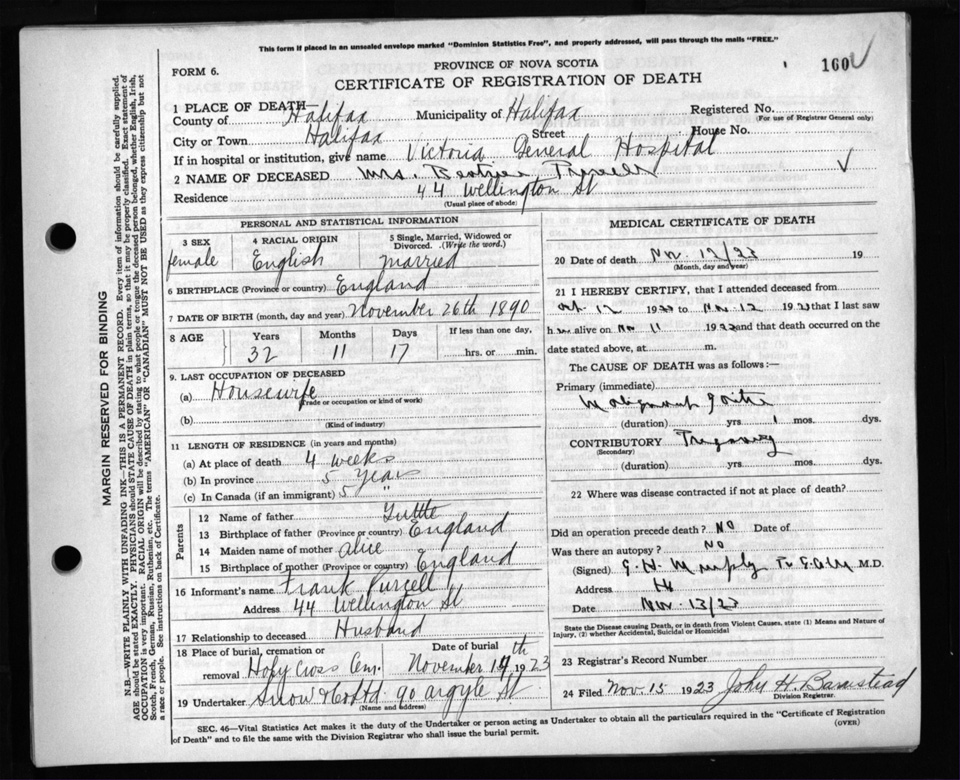 This form if placed in an unsealed envelope marked "Dominion Statistics Free", and properly addressed, will pass through the mails "FREE."
FORM 6.
PROVINCE OF NOVA SCOTIA
160
CERTIFICATE OF REGISTRATION OF DEATH
1 PLACE OF DEATH—
County of Halifax Municipality of Halifax Registered No.
(For use of Registrar General only)
City or Town Halifax Street House No.
If in hospital or institution, give name Victoria General Hospital
2 NAME OF DECEASED Mrs. Beatrice Purcell
Residence 44 Wellington St
(Usual place of abode)
PERSONAL AND STATISTICAL INFORMATION
3 SEX 4 RACIAL ORIGIN 5 Single, Married, Widowed or Divorced. (Write the word.)
female English married
6 BIRTHPLACE (Province or country) England
7 DATE OF BIRTH (month, day and year) November 26th 1890
8 AGE Years Months Days If less than one day,
32 11 17 hrs. or min.
9. LAST OCCUPATION OF DECEASED
(a) Housewife
(Trade or occupation or kind of work)
(b)
(Kind of industry)
11 LENGTH OF RESIDENCE (in years and months)
(a) At place of death 4 weeks
(b) In province 5 years
(c) In Canada (if an immigrant) 5 "
Parents
12 Name of father Tuttle
13 Birthplace of father (Province or country) England
14 Maiden name of mother alice
15 Birthplace of mother (Province or country) England
16 Informant's name Frank Purcell
Address 44 Wellington St
17 Relationship to deceased Husband
18 Place of burial, cremation or removal Holy Cross Cem. Date of burial November 14th 1923
19 Undertaker Snow & Co Ltd 90 argyle St
(Name and address)
MEDICAL CERTIFICATE OF DEATH
20 Date of death Nov. 12/23 19
(Month, day and year)
21 I HEREBY CERTIFY, that I attended deceased from
Oct. 12 1923 to Nov. 12 1923 that I last saw
h er alive on Nov 11 1923 and that death occurred on the
date stated above, at m.
The CAUSE OF DEATH was as follows:—
Primary (immediate)
Malignant goitre
(duration) yrs 1 mos. dys.
CONTRIBUTORY
(Secondary)
(duration) yrs. mos. dys.
22 Where was disease contracted if not at place of death?
Did an operation precede death? NO Date of
Was there an autopsy? NO
(Signed) G. H. Murphy M.D.
Address Hx
Date Nov. 13/23
State the Disease causing Death, or in death from Violent Causes, state (1) Means and Nature of
Injury, (2) whether Accidental, Suicidal or Homicidal
23 Registrar's Record Number
24 Filed Nov. 15 1923 John H. Barnstead
Division Registrar.
SEC. 46—Vital Statistics Act makes it the duty of the Undertaker or person acting as Undertaker to obtain all the particulars required in the "Certificate of Registration
of Death" and to file the same with the Division Registrar who shall issue the burial permit.
(OVER)
MARGIN RESERVED FOR BINDING
N.B.—WRITE PLAINLY WITH UNFADING INK—THIS IS A PERMANENT RECORD. Every item of information should be carefully supplied.
AGE should be stated EXACTLY. PHYSICIANS should STATE CAUSE OF DEATH in plain terms, so that it may be properly classified. Exact statement of
OCCUPATION is very important. RACIAL ORIGIN will be described by stating to what people or tongue the deceased person belonged, whether English, Irish,
Scotch, French, German, Russian, Ruthenian, etc. The terms "AMERICAN" or "CANADIAN" MUST NOT BE USED as they express citizenship but not
a race or people. See instructions on back of Certificate.